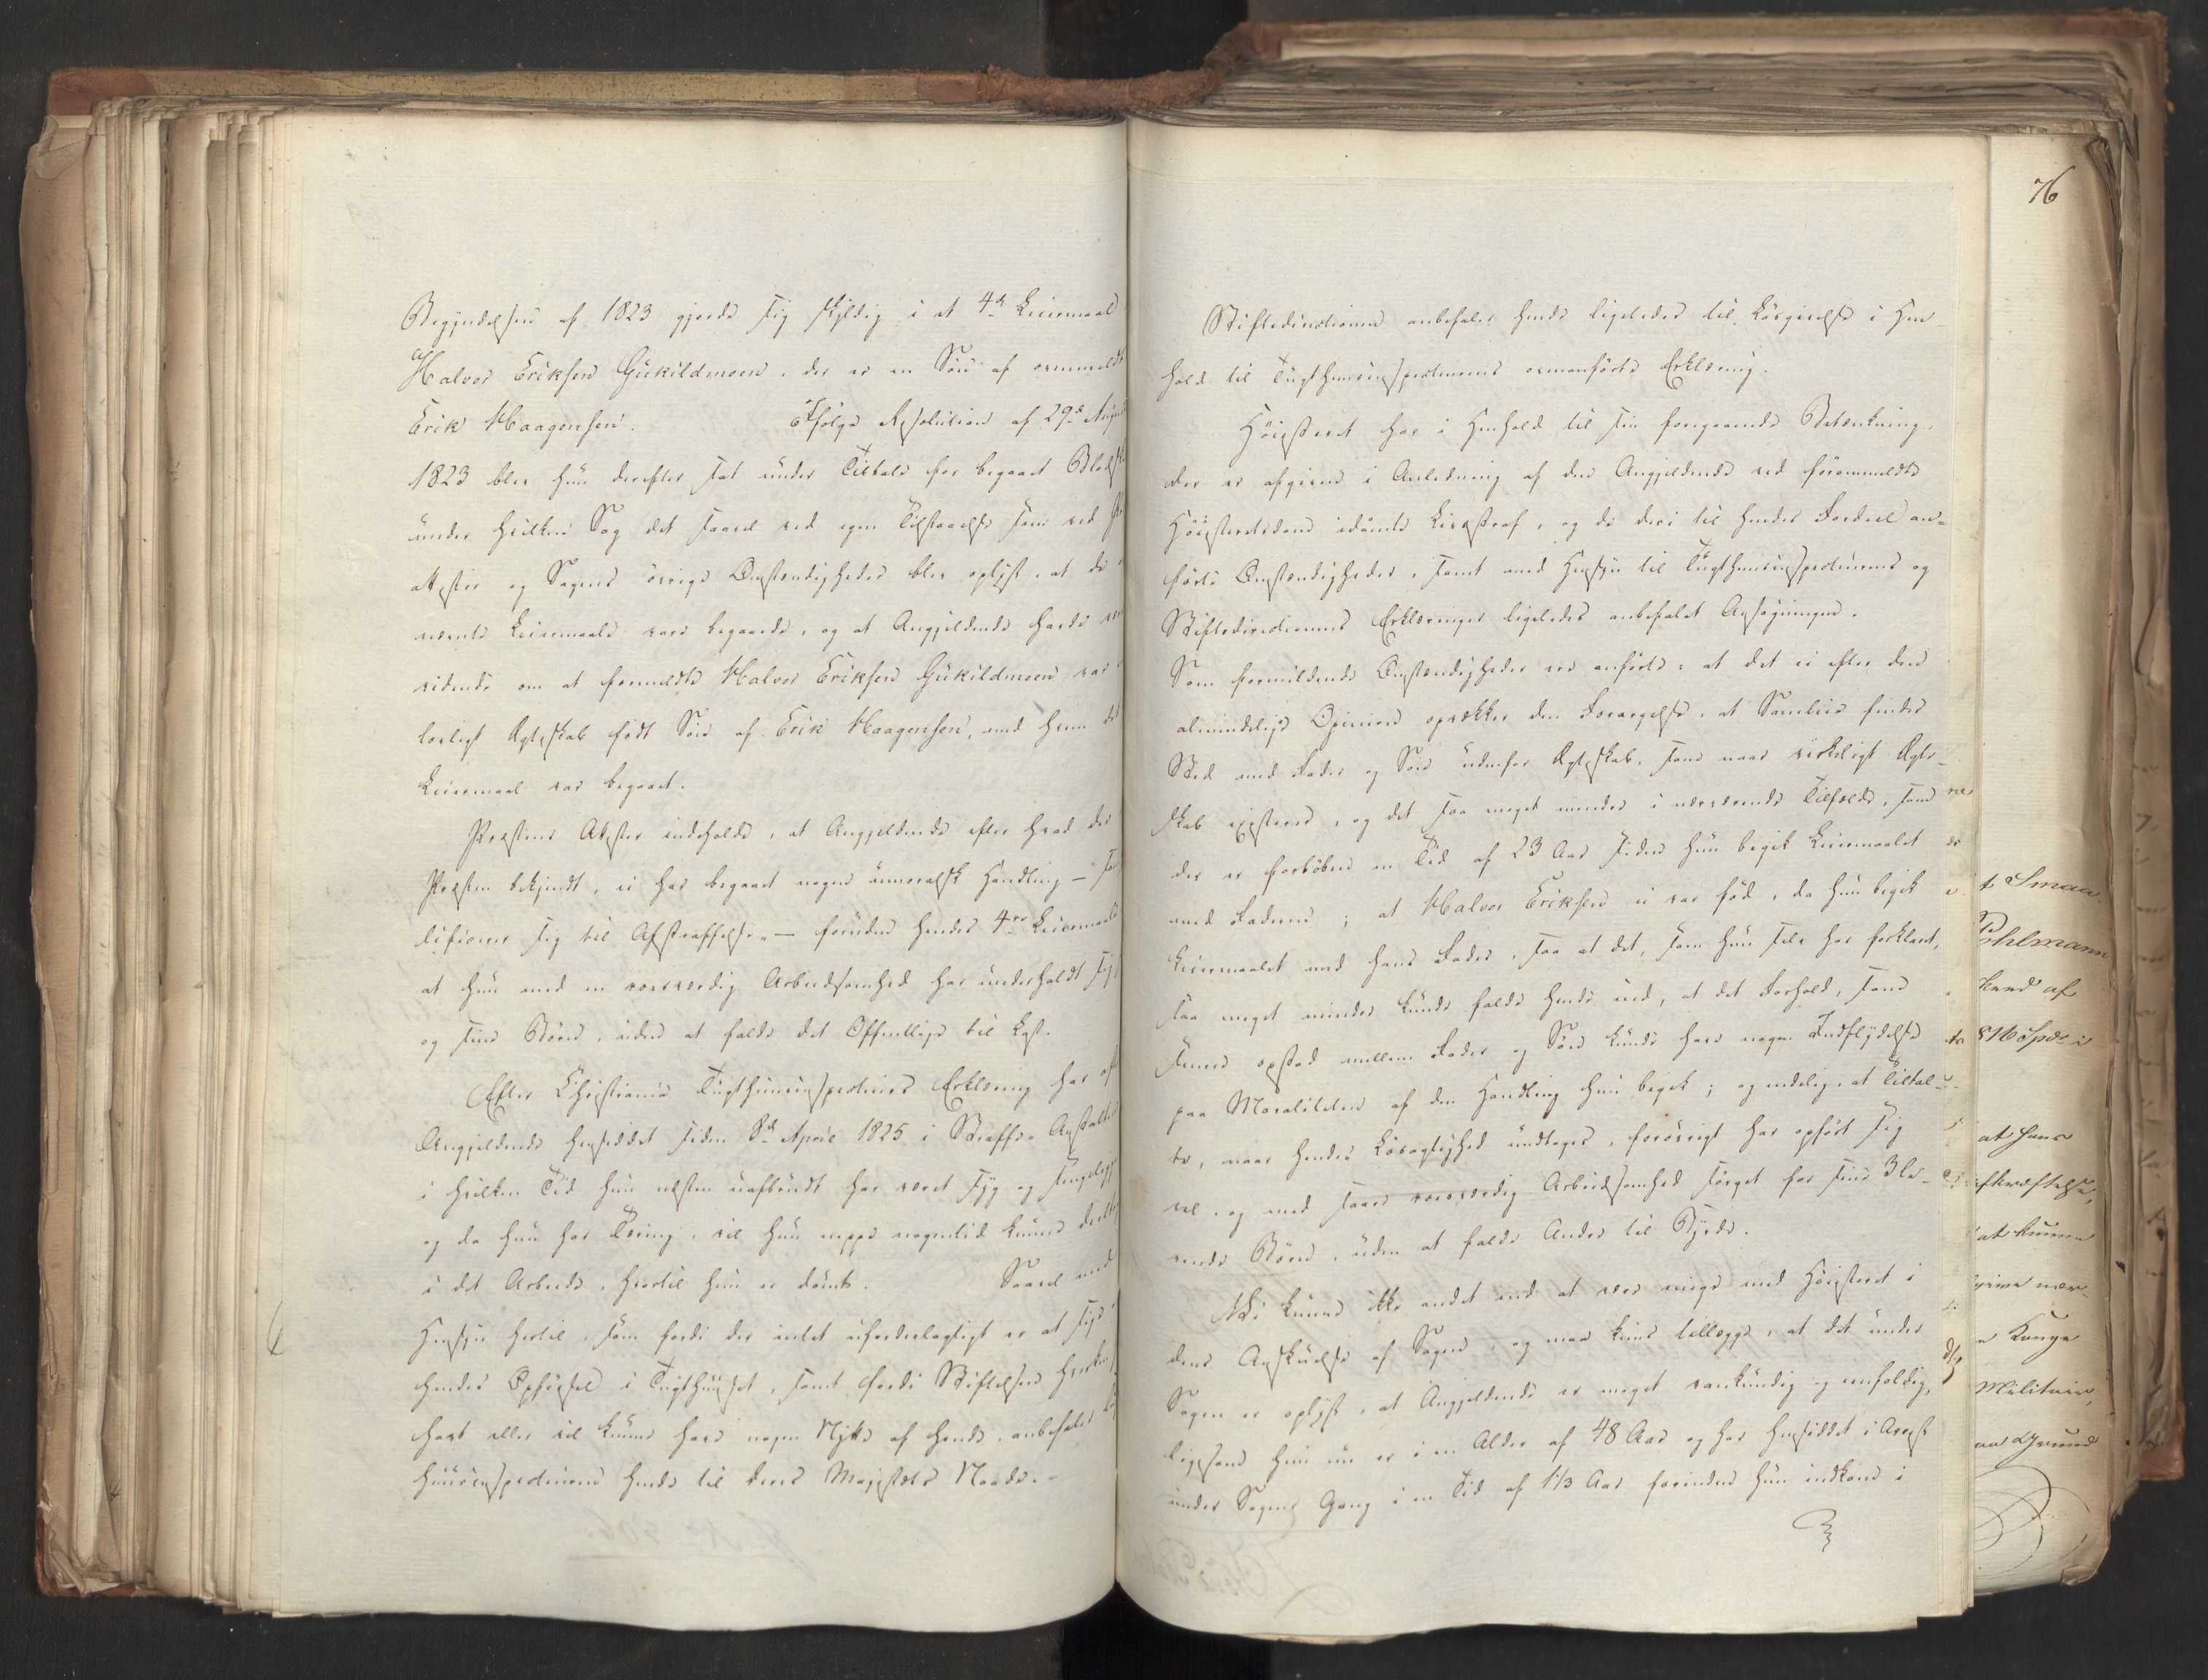 Begyndelsen af 1823 gjorde sig skyldig i et 4de Leiermaal
Halvor Eriksen Gukildmoen, der er en Søn af ovenmeldte
Erik Haagensen. Ifølge Resolution af 29de August
1823 blev hun derefter sat under Tiltale for begaaet
under hvilken Sag det saavel ved egen Tilstaaelse som ved
attester og Sagens øvrige Omstændigheder blev oplyst, at de
nævnte Leiermaale vare begaaede, og at Angjeldende havde
vidende om at formeldte Halvor Eriksen Gukildmoen var
lovligt Ægteskab født Søn af Erik Haagensen, med hvem det
Leiermaal var begaaet.
Præstens Attester indeholde, at Angjeldende efter hvad der
Præsten bekjendt, ei har begaaet nogen umoralsk Handling —
lificerer sig til Afstraffelse, — foruden hendes 4re Leiermaale
at hun med en roesværdig Arbeidsomhed har underholdt sig
og sine Børn, uden at falde det Offentlige til Last.
Efter Christiania Tugthuusinspecteurs Erklæring har
Angjeldende hensiddet siden 8de April 1825 i Straffe-Anstalten
i hvilken Tid hun næsten uafbrudt har været syg og sengeliggende
og da hun har Tæring, vil hun neppe nogentid kunne
i det Arbeide, hvortil hun er dømt. Saavel med
Hensyn hertil, som fordi der intet ufordeelagtigt er at sige
hendes Opførsel i Tugthuuset, samt fordi Stiftelsen hverken
havt eller vil kunne have nogen Nytte af hende, anbefaler
huusinspecteuren hende til Deres Majestæts Naade. —
76
Stiftsdirectionen anbefaler hende ligeledes til Løsgivelse i Hen-
hold til Tugthuusinspecteurens ovenanførte Erklæring.
Høiesteret har i Henhold til sin foregaaende Betænkning,
der er afgiven i Anledning af den Angjeldende ved forommeldte
Høiesteretsdom idømte Livsstraf, og de deri til hendes Fordeel an-
førte Omstændigheder, samt med Hensyn til Tugthuusinspecteurens og
Stiftsdirectionens Erklæringer ligeledes anbefalet Ansøgningen.
Som formildende Omstændigheder ere anførte: at det ei efter den
almindelige Opinion opvækker den Forargelse, at Samleie finder
Sted med Fader og Søn udenfor Ægteskab, som naar virkeligt Ægte-
skab existerer, og det saa meget mindre i nærværende Tilfælde, som
der er forløben en Tid af 23 Aar siden hun begik Leiermaalet
med Faderen; at Halvor Eriksen ei var fød, da hun begik
Leiermaalet med hans Fader, saa at det, som hun selv har forklaret,
saa meget mindre kunde falde hende ind, at det Forhold, som
senere opstod mellem Fader og Søn kunde have nogen Indflydelse
paa Moraliteten af den Handling hun begik; og endelig, at Tiltal-
te, naar hendes Løsagtighed undtages, forøvrigt har opført sig
vel, og med saare roesværdig Arbeidsomhed sørget for sine 3 le-
vende Børn, uden at falde Andre til Byrde.
Vi kunne ikke andet end at være enige med Høiesteret i
dens Anskuelse af Sagen, og maa kuns tillægge, at det under
Sagen er oplyst, at Angjeldende er meget vankundig og eenfoldig,
ligesom hun nu er i en Alder af 48 Aar og har hensiddet i Arrest
under Sagens Gang i en Tid af 1 1/3 Aar forinden hun indkom i
t Smaa
Pohlmann
af
816 Spd i
at hans
at kunne
Konge
Militair,
Grund